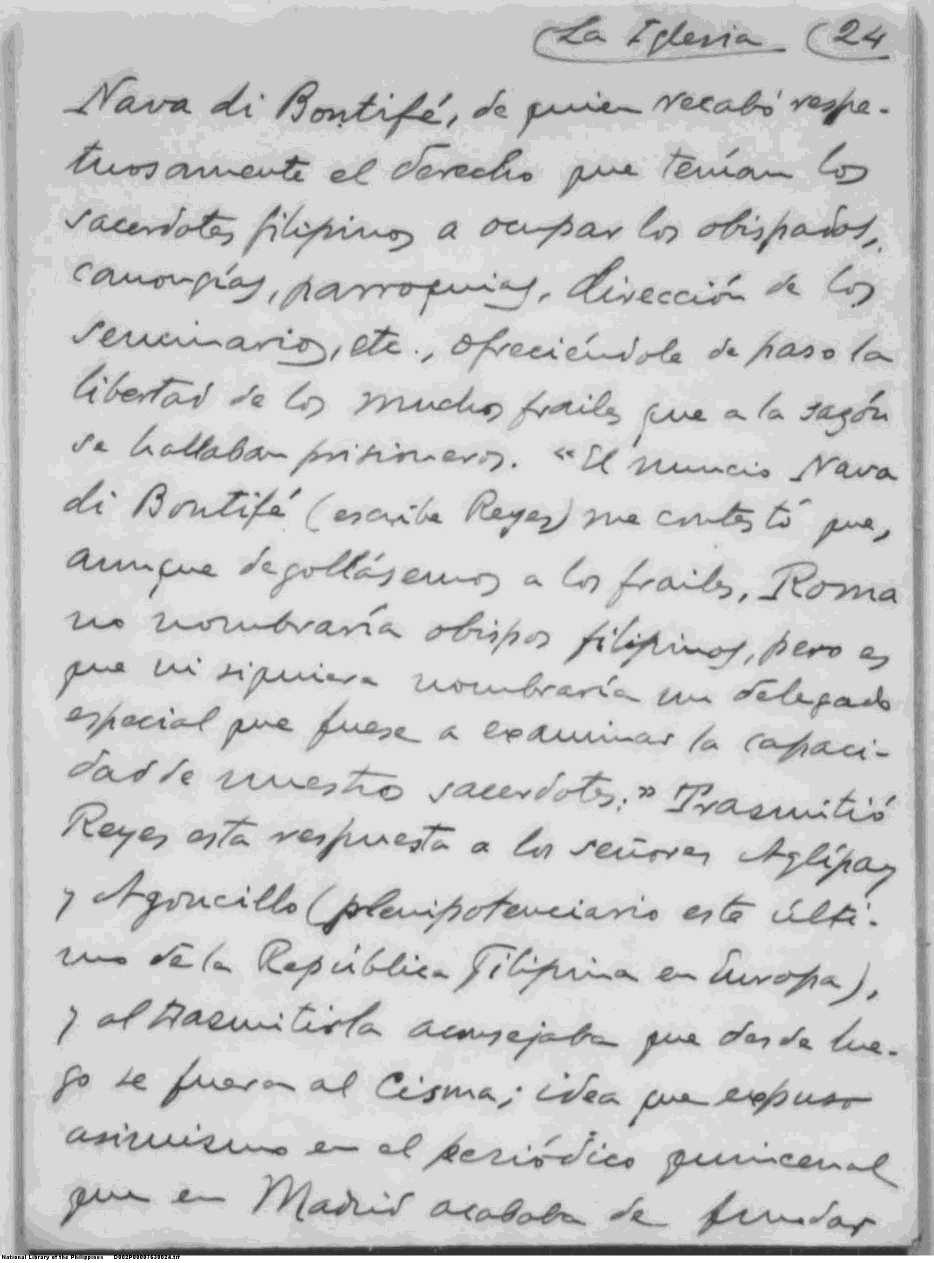 La Iglesia 24
Nava di Bontifé, de quien recabó respe-
tuosamente el derecho que tenían los
sacerdotes filipinos a ocupar los obispados,
canongías, parroquias, dirección de los
seminarios, etc., ofreciéndole de paso la
libertad de los muchos frailes que a la sazón
se hallaban prisioneros. "El nuncio Nava
di Bontifé (escribe Reyes) me contestó que,
aunque degollásemos a los frailes, Roma
no nombraría obispos filipinos, pero es
que ni siquiera nombraría un delegado
especial que fuese a examinar la capaci-
dad de nuestros sacerdotes." Trasmitió
Reyes esta respuesta a los señores Aglípay
y Agoncillo (plenipotenciario este últi-
mo de la República Filipina en Europa),
y al trasmitirla aconsejaba que desde lue-
go se fueran al Cisma; idea que expuso
asimismo en el periódico quincenal
que en Madrid acababa de fundar
National Library of the Philippines